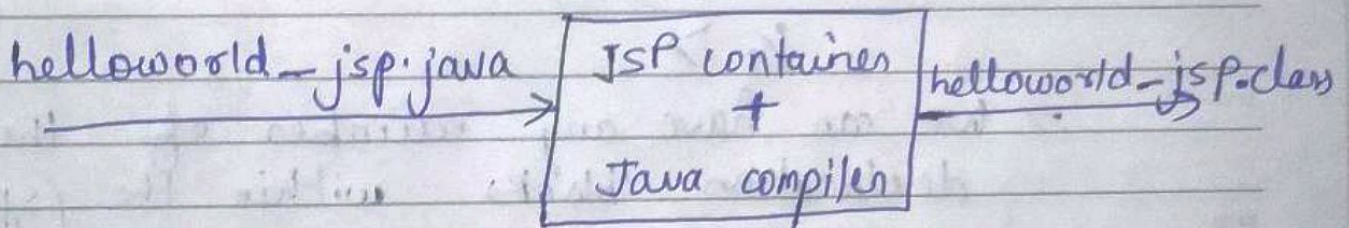 helloworld_jsp.java
JSP container
+
Java compiler
helloworld_jsp.class